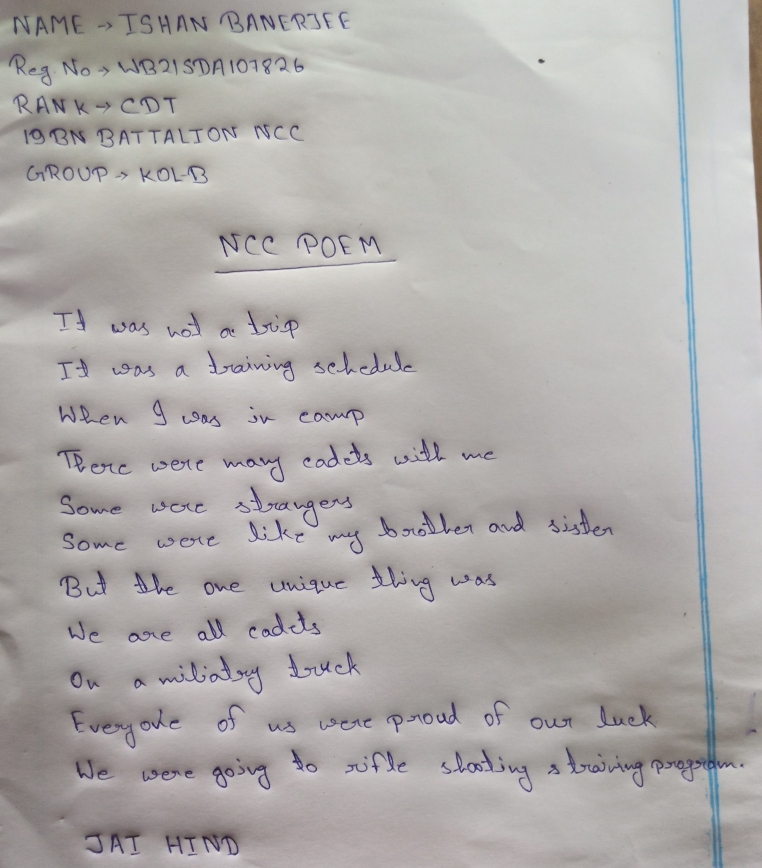 NAME → ISHAN BANERJEE
Reg. No → WB21SDA107826
RANK → CDT
19 BN BATTALION NCC
GROUP → KOL-B
NCC POEM
It was not a trip
It was a training schedule
When I was in camp
There were many cadets with me
Some were strangers
Some were like my brother and sister
But the one unique thing was
We are all cadets
On a miliatry truck
Everyone of us were proud of our luck
We were going to rifle shooting & training program.
JAI HIND